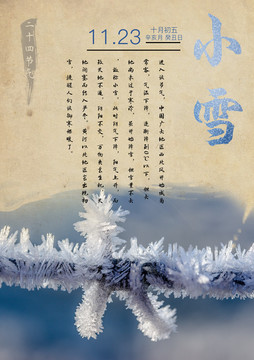 小雪
11.23
十月初五
辛亥月 癸丑日
二十四节气
进入该节气，中国广大地区西北风开始成为
常客，气温下降，逐渐降到0℃以下，但大
地尚未过于寒冷，虽开始降雪，但雪量不大
，故称小雪。此时阴气下降，阳气上升，而
致天地不通，阴阳不交，万物失去生机，天
地闭塞而转入严冬。黄河以北地区会出现初
雪，提醒人们该御寒保暖了。